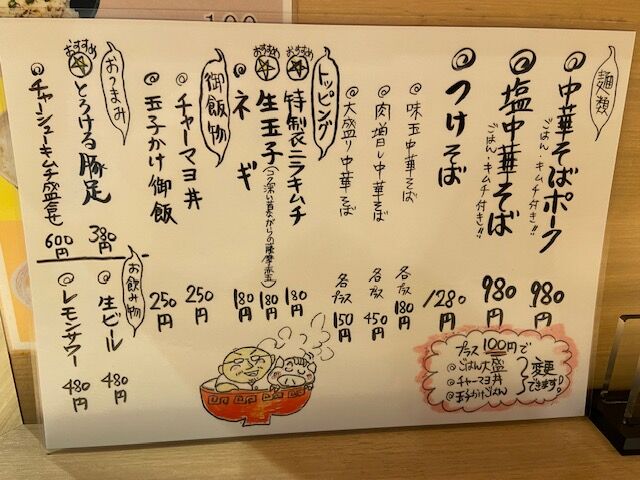 100
麺類
◎中華そばポーク 980円
ごはん・キムチ付き!!
◎塩中華そば 980円
ごはん・キムチ付き!!
◎つけそば 1280円
◎味玉中華そば 各プラス180円
◎肉増し中華そば 各プラス450円
◎大盛り中華そば 各プラス150円
トッピング
おすすめ 特製ニラキムチ 180円
おすすめ 生玉子 180円
◎ネギ 180円
御飯物
◎チャーマヨ丼 250円
◎玉子かけ御飯 250円
おつまみ
おすすめ とろける豚足 380円
◎チャーシューキムチ盛合せ 600円
お飲み物
◎生ビール 480円
◎レモンサワー 480円
プラス100円で
◎ごはん大盛
◎チャーマヨ丼
◎玉子かけごはん
変更できます!